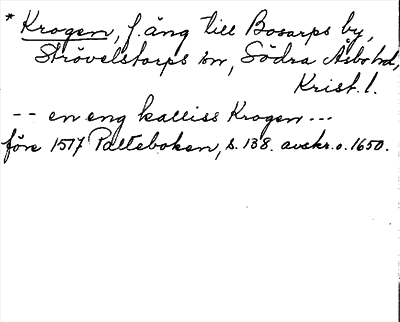 * Krogen, f. äng till Bosarps by,
Strövelstorps sn, Södra Åsbo hd,
Krist. l.
-- en eng kalliss Krogen ---
före 1517 Palteboken, s. 138. avskr. o. 1650.